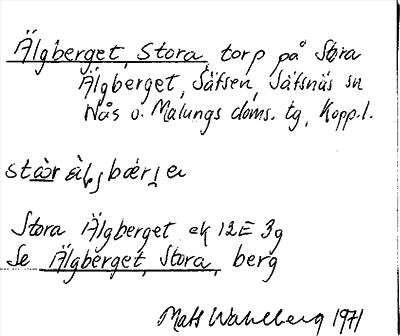 Älgberget, Stora, torp på Stora
Älgberget, Säfsen, Säfsnäs sn
Nås o. Malungs doms. tg, Kopp.l.
Stora Älgberget ek 12E 3g
Se Älgberget, Stora, berg
Mats Wahlberg 1971